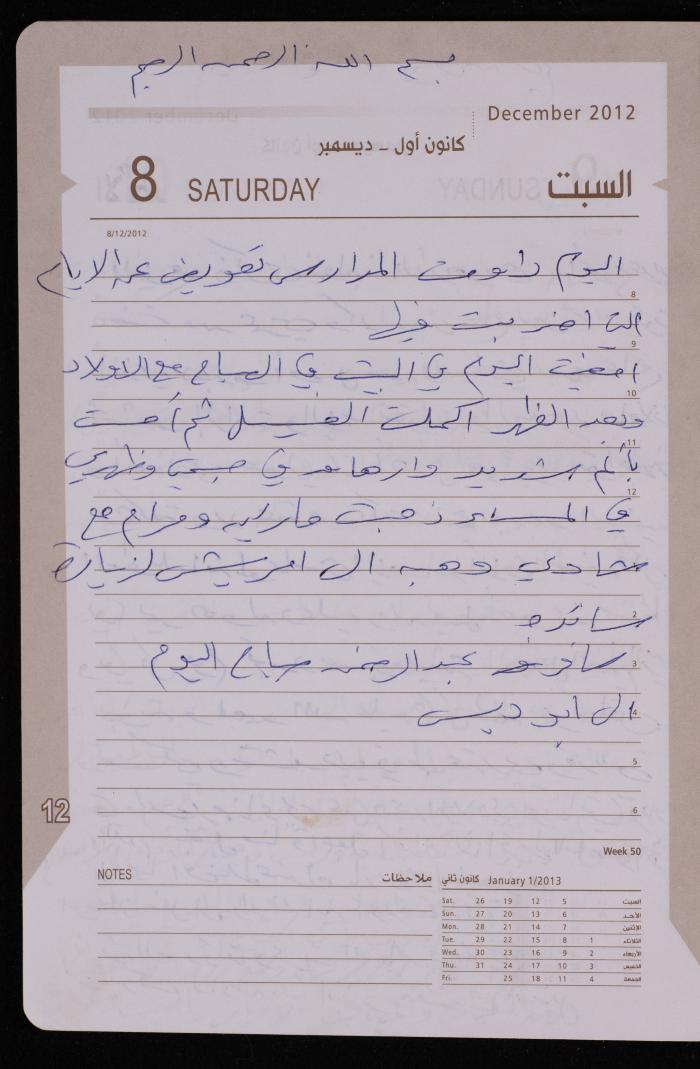 بسم الله الرحمن الرحيم
December 2012
كانون أول - ديسمبر
8 SATURDAY السبت
8/12/2012
اليوم داومت المدارس تعويض عن الايام
8
التي اضربت فيها
9
امضيت اليوم في البيت في الصباح مع الاولاد
10
وبعد الظهر اكملت الغسيل ثم أحست
11
بألم شديد وارهاق في جسمي وظهري
12
في المساء ذهبت ماريه ومرام مع
شادي وهبه الى امريش لزيارة
2
سائده
3
سافر عبد الرحمن صباح اليوم
4
الى ابو ديس
5
6
12
Week 50
NOTES ملاحظات
January 1/2013 كانون ثاني
Sat. 26 19 12 5 السبت
Sun. 27 20 13 6 الأحد
Mon. 28 21 14 7 الإثنين
Tue. 29 22 15 8 1 الثلاثاء
Wed. 30 23 16 9 2 الأربعاء
Thu. 31 24 17 10 3 الخميس
Fri. 25 18 11 4 الجمعة